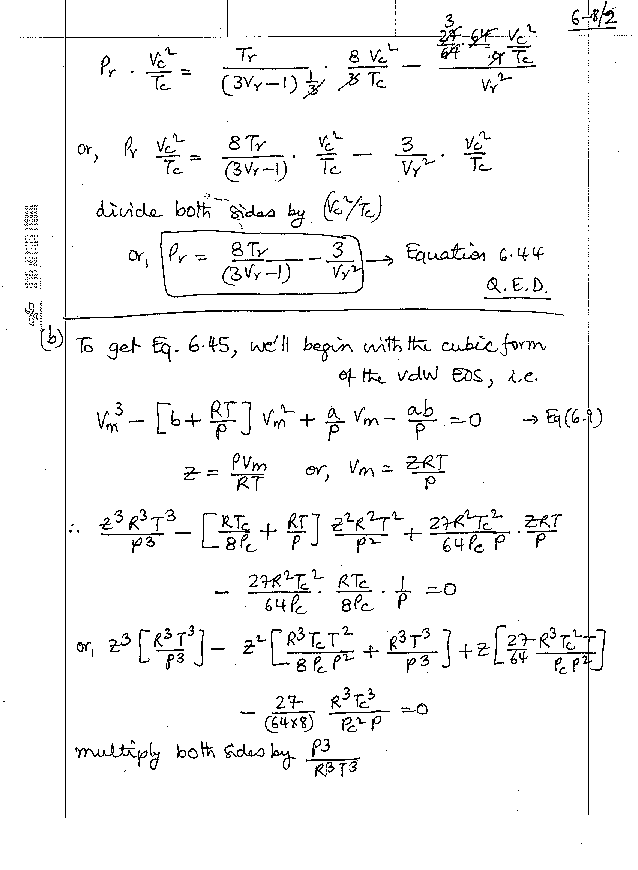 6-8/2
Pr · Vc²/Tc = Tr/((3Vr-1) 1/3) · 8 Vc²/(3 Tc) - (3 27/64 · 64/9 · Vc²/Tc)/Vr²
or, Pr Vc²/Tc = 8Tr/(3Vr-1) · Vc²/Tc - 3/Vr² · Vc²/Tc
divide both sides by (Vc²/Tc)
or, Pr = 8Tr/(3Vr-1) - 3/Vr² → Equation 6.44
Q.E.D.
(b) To get Eq. 6.45, we'll begin with the cubic form
of the vdW EOS, i.e.
Vm³ - [b + RT/P] Vm² + a/P Vm - ab/P = 0 → Eq(6.9)
Z = PVm/RT or, Vm = ZRT/P
∴ Z³R³T³/P³ - [RTc/8Pc + RT/P] Z²R²T²/P² + 27R²Tc²/(64Pc P) · ZRT/P
- 27R²Tc²/64Pc · RTc/8Pc · 1/P = 0
or, Z³ [R³T³/P³] - Z² [R³TcT²/(8PcP²) + R³T³/P³] + Z [27/64 R³Tc²T/(PcP²)]
- 27/(64×8) R³Tc³/(Pc²P) = 0
multiply both sides by P³/R³T³